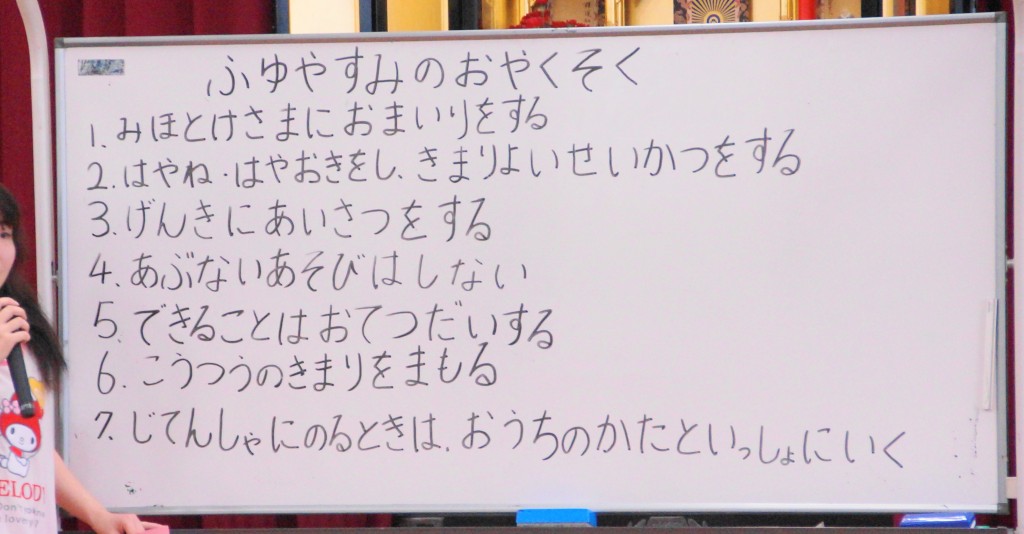 ふゆやすみのおやくそく
1. みほとけさまにおまいりをする
2. はやね・はやおきをし、きまりよいせいかつをする
3. げんきにあいさつをする
4. あぶないあそびはしない
5. できることはおてつだいする
6. こうつうのきまりをまもる
7. じてんしゃにのるときは、おうちのかたといっしょにいく
ELODY
on't
lovely?